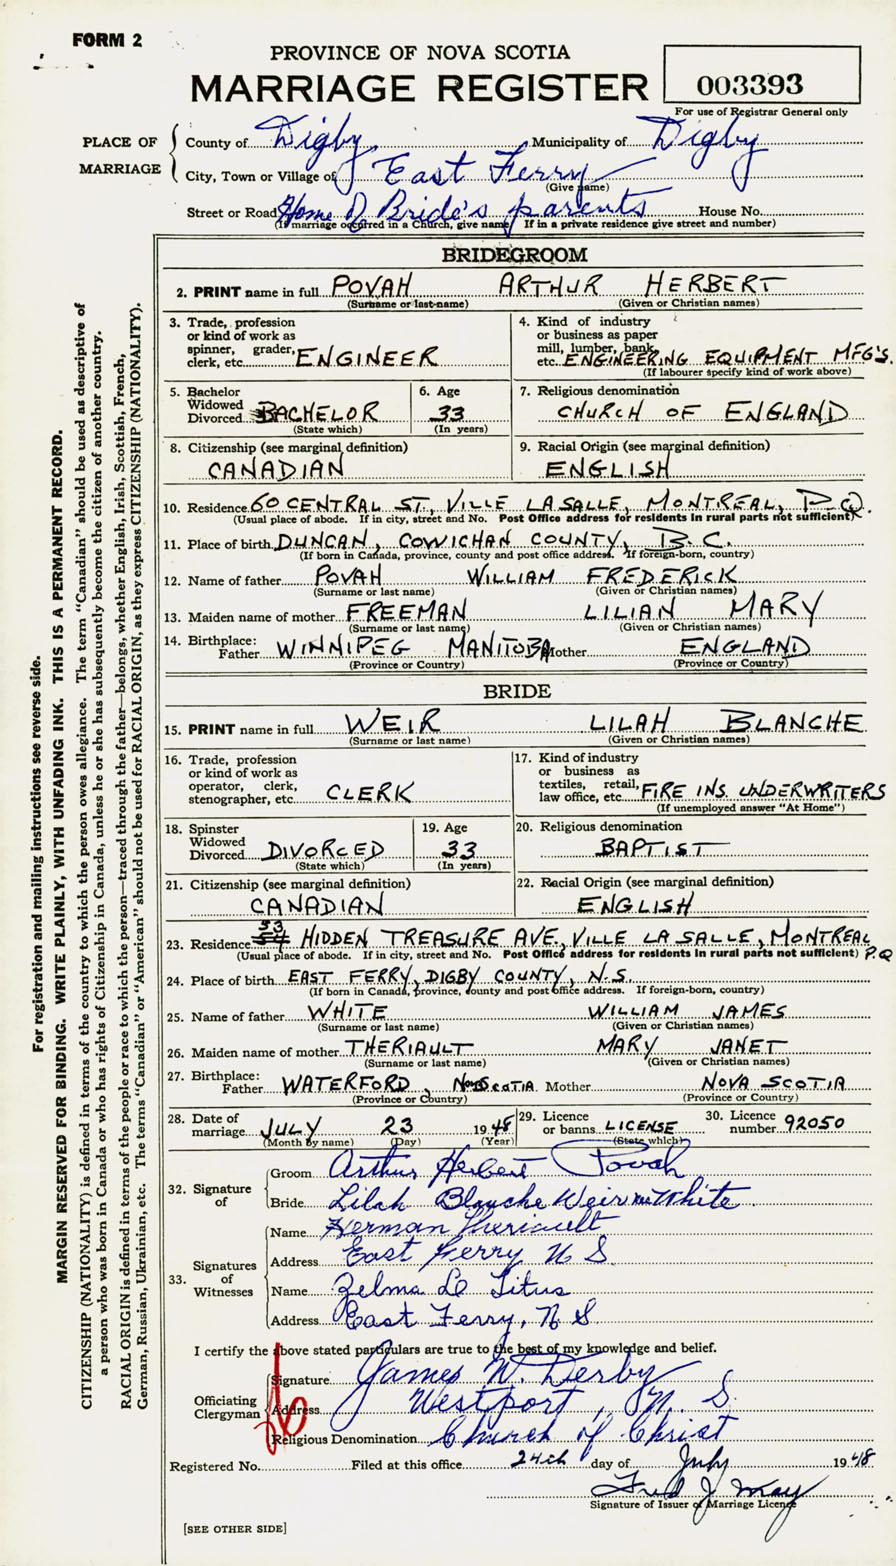 FORM 2
PROVINCE OF NOVA SCOTIA
MARRIAGE REGISTER
003393
For use of Registrar General only
PLACE OF MARRIAGE
County of Digby Municipality of Digby
City, Town or Village of East Ferry
(Give name)
Street or Road Home of Bride's parents House No.
(If marriage occurred in a Church, give name) If in a private residence give street and number)
BRIDEGROOM
2. PRINT name in full POVAH ARTHUR HERBERT
(Surname or last name) (Given or Christian names)
3. Trade, profession
or kind of work as
spinner, grader,
clerk, etc. ENGINEER
4. Kind of industry
or business as paper
mill, lumber, bank,
etc. ENGINEERING EQUIPMENT MFG'S.
(If labourer specify kind of work above)
5. Bachelor
Widowed
Divorced BACHELOR
(State which)
6. Age
33
(In years)
7. Religious denomination
CHURCH OF ENGLAND
8. Citizenship (see marginal definition)
CANADIAN
9. Racial Origin (see marginal definition)
ENGLISH
10. Residence 60 CENTRAL ST., VILLE LASALLE, MONTREAL, P.Q.
(Usual place of abode. If in city, street and No. Post Office address for residents in rural parts not sufficient)
11. Place of birth DUNCAN, COWICHAN COUNTY, B.C.
(If born in Canada, province, county and post office address. If foreign-born, country)
12. Name of father POVAH WILLIAM FREDERICK
(Surname or last name) (Given or Christian names)
13. Maiden name of mother FREEMAN LILIAN MARY
(Surname or last name) (Given or Christian names)
14. Birthplace:
Father WINNIPEG MANITOBA Mother ENGLAND
(Province or Country) (Province or Country)
BRIDE
15. PRINT name in full WEIR LILAH BLANCHE
(Surname or last name) (Given or Christian names)
16. Trade, profession
or kind of work as
operator, clerk,
stenographer, etc. CLERK
17. Kind of industry
or business as
textiles, retail,
law office, etc. FIRE INS. UNDERWRITERS
(If unemployed answer "At Home")
18. Spinster
Widowed
Divorced DIVORCED
(State which)
19. Age
33
(In years)
20. Religious denomination
BAPTIST
21. Citizenship (see marginal definition)
CANADIAN
22. Racial Origin (see marginal definition)
ENGLISH
23. Residence 53 HIDDEN TREASURE AVE., VILLE LA SALLE, MONTREAL P.Q
(Usual place of abode. If in city, street and No. Post Office address for residents in rural parts not sufficient)
24. Place of birth EAST FERRY, DIGBY COUNTY, N.S.
(If born in Canada, province, county and post office address. If foreign-born, country)
25. Name of father WHITE WILLIAM JAMES
(Surname or last name) (Given or Christian names)
26. Maiden name of mother THERIAULT MARY JANET
(Surname or last name) (Given or Christian names)
27. Birthplace:
Father WATERFORD, NOVA SCOTIA Mother NOVA SCOTIA
(Province or Country) (Province or Country)
28. Date of
marriage JULY 23 1948
(Month by name) (Day) (Year)
29. Licence
or banns LICENSE
(State which)
30. Licence
number 92050
32. Signature of
Groom Arthur Herbert Povah
Bride Lilah Blanche Weir née White
33. Signatures of Witnesses
Name Herman Theriault
Address East Ferry N S
Name Zelma Le Titus
Address East Ferry, N S
I certify the above stated particulars are true to the best of my knowledge and belief.
Officiating Clergyman
Signature James W. Derby
Address Westport, N. S.
Religious Denomination Church of Christ
Registered No. Filed at this office 24th day of July 1948
Fred J May
Signature of Issuer of Marriage Licence
[SEE OTHER SIDE]
For registration and mailing instructions see reverse side.
MARGIN RESERVED FOR BINDING. WRITE PLAINLY, WITH UNFADING INK. THIS IS A PERMANENT RECORD.
CITIZENSHIP (NATIONALITY) is defined in terms of the country to which the person owes allegiance. The term "Canadian" should be used as descriptive of
a person who was born in Canada or who has rights of Citizenship in Canada, unless he or she has subsequently become the citizen of another country.
RACIAL ORIGIN is defined in terms of the people or race to which the person—traced through the father—belongs, whether English, Irish, Scottish, French,
German, Russian, Ukrainian, etc. The terms "Canadian" or "American" should not be used for RACIAL ORIGIN, as they express CITIZENSHIP (NATIONALITY).